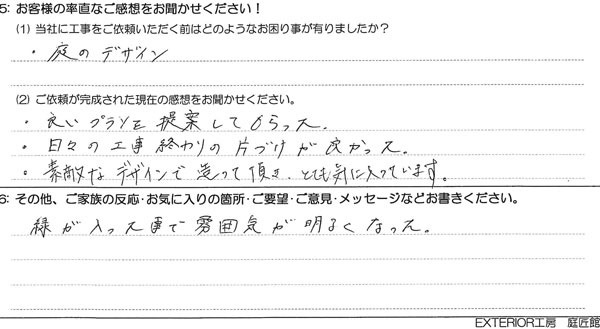 5: お客様の率直なご感想をお聞かせください！
(1) 当社に工事をご依頼いただく前はどのようなお困り事が有りましたか？
・庭のデザイン
(2) ご依頼が完成された現在の感想をお聞かせください。
・良いプランを提案してもらった。
・日々の工事終わりの片づけが良かった。
・素敵なデザインで造って頂き、とても気に入っています。
6: その他、ご家族の反応・お気に入りの箇所・ご要望・ご意見・メッセージなどお書きください。
緑が入った事で雰囲気が明るくなった。
EXTERIOR工房 庭匠館